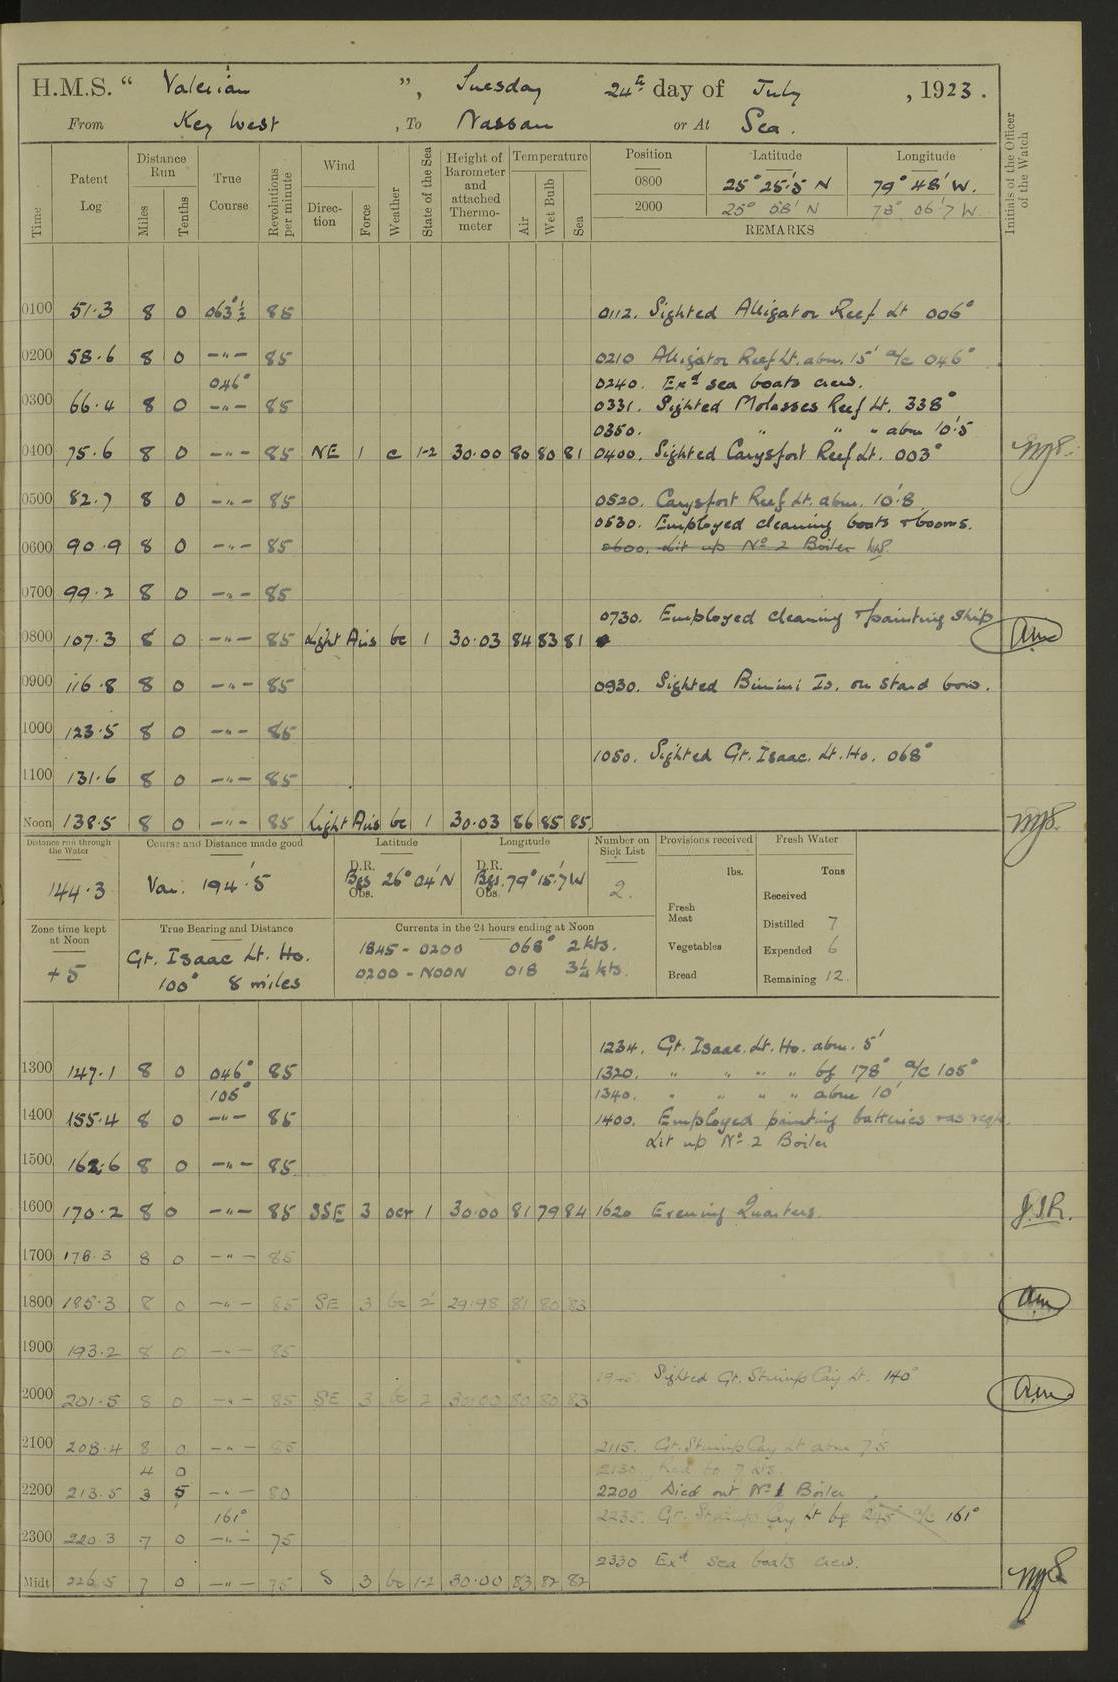 H.M.S. “ Valerian ”, Tuesday 24th day of July , 1923 .
From Key West , To Nassau or At Sea .
Time Patent Log Distance Run Miles Tenths True Course Revolutions per minute Wind Direction Force Weather State of the Sea Height of Barometer and attached Thermometer Temperature Air Wet Bulb Sea Position Latitude Longitude Initials of the Officer of the Watch
0800 25° 25'.5 N 79° 48' W.
2000 25° 58' N 78° 06'.7 W
REMARKS
0100 51.3 8 0 063°½ 85 0112. Sighted Alligator Reef Lt 006°
0200 58.6 8 0 —"— 85 0210 Alligator Reef Lt. abm. 15' a/c 046°
046° 0240. Exd sea boats crew.
0300 66.4 8 0 —"— 85 0331. Sighted Molasses Reef Lt. 338°
0350. " " " abm 10'.5
0400 75.6 8 0 —"— 85 NE 1 c 1-2 30.00 80 80 81 0400. Sighted Carysfort Reef Lt. 003°
0500 82.7 8 0 —"— 85 0520. Carysfort Reef Lt. abm. 10'.8
0530. Employed cleaning boats & booms.
0600 90.9 8 0 —"— 85 0600. Lit up No 2 Boiler
0700 99.2 8 0 —"— 85
0730. Employed cleaning & painting ship
0800 107.3 8 0 —"— 85 Light Airs bc 1 30.03 84 83 81
0900 116.8 8 0 —"— 85 0930. Sighted Bimini Is. on stard bow.
1000 123.5 8 0 —"— 85
1050. Sighted Gt. Isaac. Lt. Ho. 068°
1100 131.6 8 0 —"— 85
Noon 138.5 8 0 —"— 85 Light Airs bc 1 30.03 86 85 85
Distance run through the Water Course and Distance made good Latitude Longitude Number on Sick List Provisions received Fresh Water
144.3 Var. 194'.5 D.R. Bgs Obs. 26° 04' N D.R. Bgs. Obs. 79° 15'.7 W 2. lbs. Tons
Received
Fresh Meat
Distilled 7
Zone time kept at Noon True Bearing and Distance Currents in the 24 hours ending at Noon
+5 Gt. Isaac Lt. Ho. 1845 - 0200 068° 2 kts. Vegetables Expended 6
100° 8 miles 0200 - NOON 018 3¼ kts. Bread Remaining 12.
1234. Gt. Isaac. Lt. Ho. abm. 5'
1300 147.1 8 0 046° 85 1320. " " " " bg 178° a/c 105°
105° 1340. " " " " abm 10'
1400 155.4 8 0 —"— 85 1400. Employed painting batteries
Lit up No 2 Boiler
1500 162.6 8 0 —"— 85
1600 170.2 8 0 —"— 85 SSE 3 ocr 1 30.00 81 79 84 1620 Evening Quarters. J.S.R.
1700 178.3 8 0 —"— 85
1800 185.3 8 0 —"— 85 SE 3 bc 2 29.98 81 80 83
1900 193.2 8 0 —"— 85
Sighted Gt. Stirrup Cay Lt. 140°
2000 201.5 8 0 —"— 85 SE 3 bc 2 30.00 80 80 83
2100 208.4 8 0 —"— 85 2115. Gt. Stirrup Cay Lt abm 7'.5
4 0 2130
2200 213.5 3 5 —"— 80 2200 Died out No 1 Boiler
161° 2235. Gt. Stirrup Cay Lt bg 245° a/c 161°
2300 220.3 7 0 —"— 75
2330 Exd sea boats crew.
Midt 226.5 7 0 —"— 75 S 3 bc 1-2 30.00 83 82 82